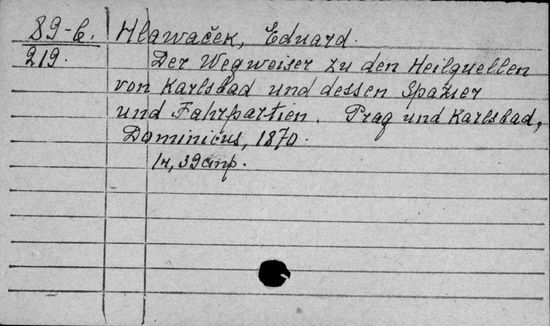 89-b. Hlawaček, Eduard.
219. Der Wegweiser zu den Heilquellen
von Karlsbad und dessen Spazier
und Fahrpartien. Prag und Karlsbad,
Dominicus, 1870.
39